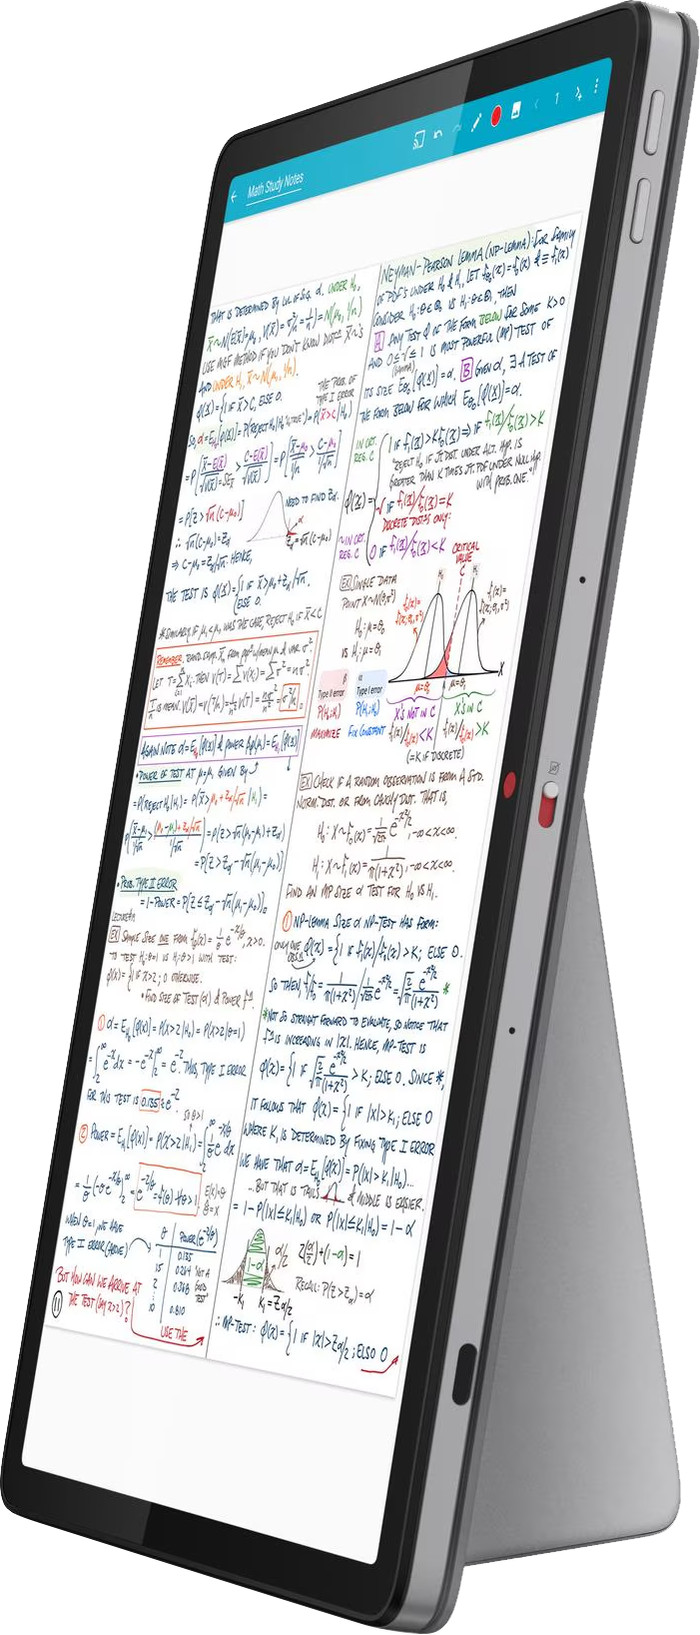 Math Study Notes
THAT IS DETERMINED BY LVL OF SIG. α. UNDER H₀,
X̄~N(E(X̄)=μ₀, V(X̄)=σ²/n=1/n)=N(μ₀, 1/n)
USE MGF METHOD IF YOU DON'T KNOW DIST OF X̄~'S
AND UNDER H₁, X̄~N(μ₁, 1/n).
φ(x)={1 IF X̄>C, ELSE 0.
THE PROB. OF
TYPE I ERROR
SO, α=E_H₀[φ(x)]=P(REJECT H₀|H₀ "TRUE")=P(X̄>C|H₀)
=P[(X̄-E(X̄))/√V(X̄) > (C-E(X̄))/ ]=P[(X̄-μ₀)/(1/√n) > (C-μ₀)/(1/√n)]
=P[Z>√n(C-μ₀)]
NEED TO FIND Zα.
∴ √n(C-μ₀)=Zα
Zα=√n(C-μ₀)
⇒ C=μ₀+Zα/√n. HENCE,
THE TEST IS φ(x)={1 IF X̄>μ₀+Zα/√n.
ELSE 0.
*SIMILARLY, IF μ₁<μ₀ WAS THE CASE, REJECT H₀ IF X̄<C
REMEMBER: RAND. SAMP. X̄ₙ FROM POP W/ MEAN μ & VAR σ².
LET T=ΣXᵢ. THEN V(T)=ΣV(Xᵢ)=Σσ²=nσ².
T/n IS MEAN. V(X̄)=V(T/n)=1/n² V(T)=nσ²/n²=σ²/n
AGAIN NOTE α=E_H₀[φ(x)] & POWER =E_H₁[φ(x)]
•POWER OF TEST AT μ=μ₁ GIVEN BY
=P(REJECT H₀|H₁)=P(X̄>μ₀+Zα/√n|H₁)=
P[(X̄-μ₁)/(1/√n)>((μ₀-μ₁)+Zα/√n)/(1/√n)]=P(Z>√n(μ₀-μ₁)+Zα)
=P(Z>Zα-√n(μ₁-μ₀))
•PROB. TYPE II ERROR
=1-POWER=P[Z≤Zα-√n(μ₁-μ₀)]
EX SAMPLE SIZE ONE FROM f_θ(x)=1/θ e^(-x/θ), x>0.
TO TEST H₀:θ=1 VS H₁:θ>1 WITH TEST:
φ(x)={1 IF X>2; 0 OTHERWISE.
•FIND SIZE OF TEST (α) & POWER
① α=E_H₀[φ(x)]=P(X>2|H₀)=P(X>2|θ=1)
=∫₂^∞ e^(-x)dx=-e^(-x)|₂^∞=e^(-2). THUS, TYPE I ERROR
FOR THIS TEST IS 0.135≈e^(-2).
SO θ>1
② POWER=E_H₁[φ(x)]=P(X>2|H₁)=∫₂^∞ 1/θ e^(-x/θ)dx
=1/θ(-θe^(-x/θ))₂^∞=e^(-2/θ)=f(θ) ∀θ>1
WHEN θ=1, WE HAVE
TYPE I ERROR (ABOVE)
θ POWER(e^(-2/θ))
1 0.135
1.5 0.264
2 0.368
10 0.810
NOT A
GOOD
TEST
BUT HOW CAN WE ARRIVE AT
THE TEST (SAY X>2)?
USE THE
11
NEYMAN-PEARSON LEMMA (NP-LEMMA): FOR FAMILY
OF PDF'S UNDER H₀ & H₁, LET f_θ₀(x)=f₀(x) & ≡f₁(x)
CONSIDER H₀:θ∈Θ₀ VS H₁:θ∈Θ₁, THEN
A ANY TEST φ OF THE FORM BELOW FOR SOME K>0
AND 0≤γ≤1 IS MOST POWERFUL (MP) TEST OF
(GAMMA)
ITS SIZE E_θ₀[φ(x)]=α. B GIVEN α, ∃ A TEST OF
THE FORM BELOW FOR WHICH E_θ₀[φ(x)]=α.
IN CRT.
REG. C
1 IF f₁(x)>Kf₀(x)⇒IF f₁(x)/f₀(x)>K
"REJECT H₀ IF JT. DIST. UNDER ALT. HYP. IS
GREATER THAN K TIMES JT. PDF UNDER NULL HYP.
WITH PROB. ONE."
φ(x)=
γ IF f₁(x)/f₀(x)=K
DISCRETE DIST'NS ONLY:
~IN CRT.
REG. C
0 IF f₁(x)/f₀(x)<K
CRITICAL
VALUE
C
EX SINGLE DATA
POINT X~N(θ,σ²)
H₀:μ=θ₀
VS H₁:μ=θ₁
β
Type II error
P(H₀;H₁)
MAXIMIZE
α
Type I error
P(H₁;H₀)
FIX CONSTANT
f₀(x)=
f(x;θ₀,σ²)
f₁(x)=
f(x;θ₁,σ²)
H₀
H₁
X
μ=θ₀
μ=θ₁
X'S NOT IN C
X'S IN C
f₁(x)/f₀(x)<K
f₁(x)/f₀(x)>K
(=K IF DISCRETE)
EX CHECK IF A RANDOM OBSERVATION IS FROM A STD.
NORM. DIST. OR FROM CAUCHY DIST. THAT IS,
H₀: X~f₀(x)=1/√2π e^(-x²/2), -∞<x<∞.
H₁: X~f₁(x)=1/(π(1+x²)), -∞<x<∞.
FIND AN MP SIZE α TEST FOR H₀ VS H₁.
① NP-LEMMA SIZE α NP-TEST HAS FORM:
ONLY ONE
OBS.
φ(x)={1 IF f₁(x)/f₀(x)>K; ELSE 0.
SO THEN, f₁/f₀=1/(π(1+x²))/1/√2π e^(-x²/2)=√(2/π) e^(x²/2)/(1+x²) *
*NOT SO STRAIGHT FORWARD TO EVALUATE, SO NOTICE THAT
f IS INCREASING IN |X|. HENCE, MP-TEST IS
φ(x)={1 IF √(2/π) e^(x²/2)/(1+x²)>K; ELSE 0. SINCE *,
IT FOLLOWS THAT φ(x)={1 IF |X|>K₁; ELSE 0
WHERE K₁ IS DETERMINED BY FIXING TYPE I ERROR
WE HAVE THAT α=E_H₀[φ(x)]=P(|X|>K₁|H₀)...
...BUT THAT IS TAILS MIDDLE IS EASIER.
=1-P(|X|≤K₁|H₀) OR P(|X|≤K₁|H₀)=1-α
1-α
α/2
-K₁
K₁=Zα/2
2(α/2)+(1-α)=1
RECALL: P(Z>Zα)=α
∴ MP-TEST: φ(x)={1 IF |X|>Zα/2; ELSE 0